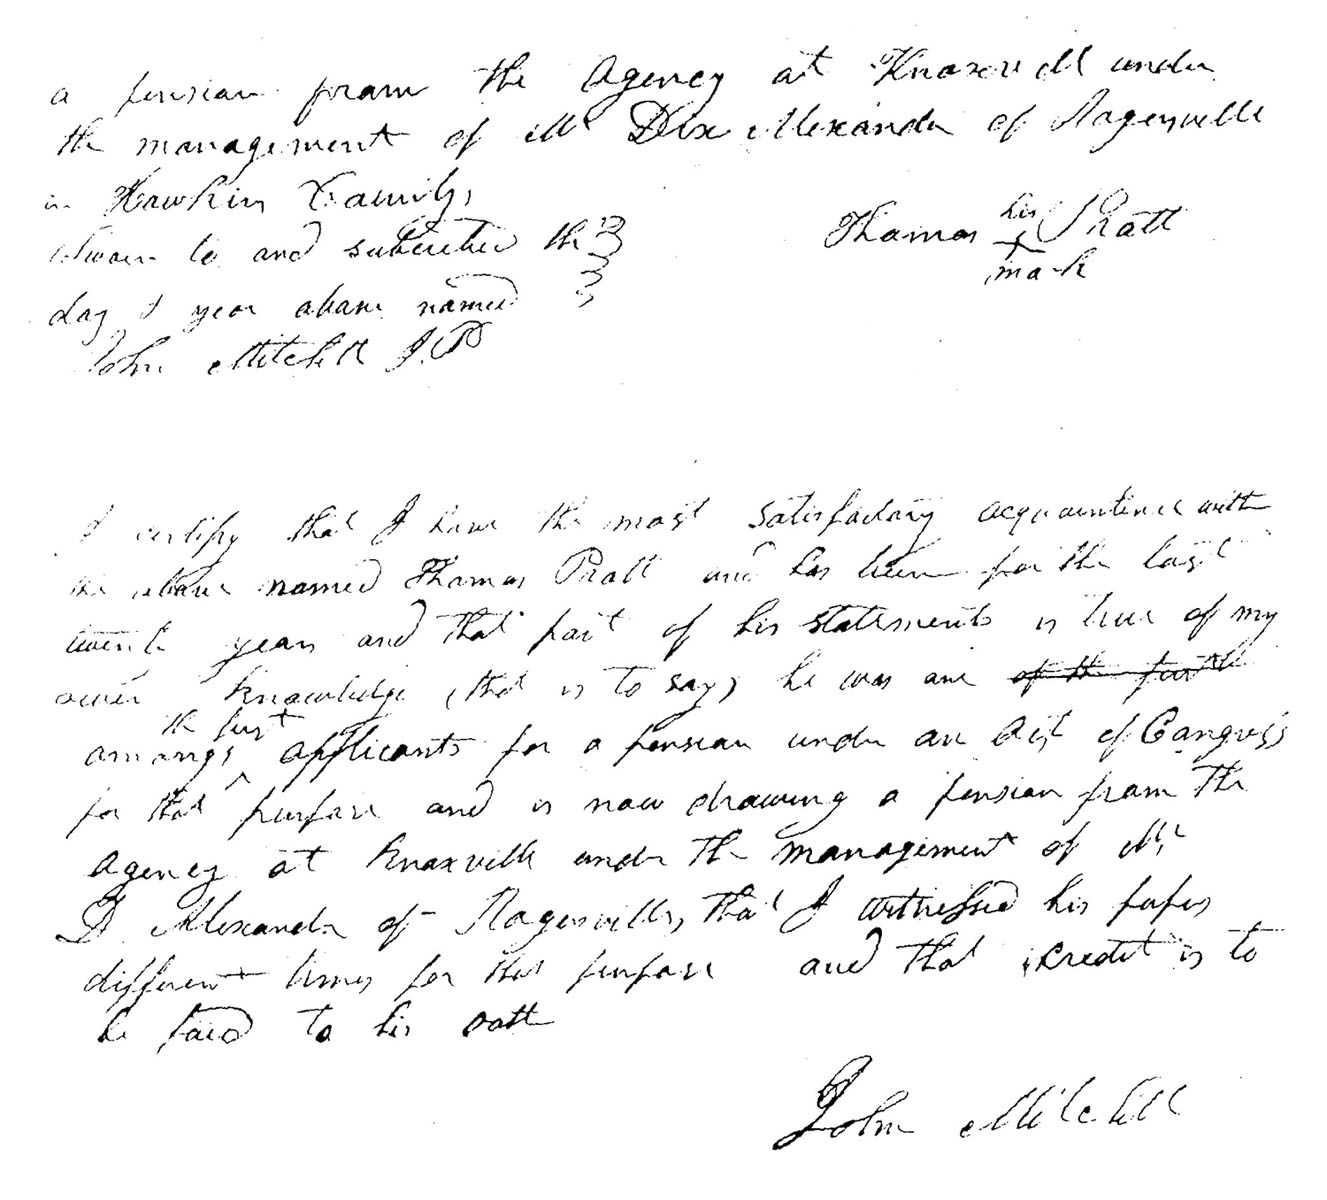 a pension from the Agency at Knoxvill under
the management of Mr Dix Alexander of Rogersville
in Hawkins County,
Sworn to and subscribed the
day & year above named
John Mitchell J.P
Thomas his Pratt
mark
I certify that I have the most satisfactory acquaintence with
the above named Thomas Pratt and has been for the last
twenty years and that part of his statements is true of my
own knowledge (that is to say) he was one of the first
the first
amongs applicants for a pension under an Act of Congress
for that purpose and is now drawing a pension from the
Agency at Knoxville under the management of Mr
D Alexander of Rogersville, that I witnessed his papers
different times for that purpose and that credit is to
be paid to his oath
John Mitchell